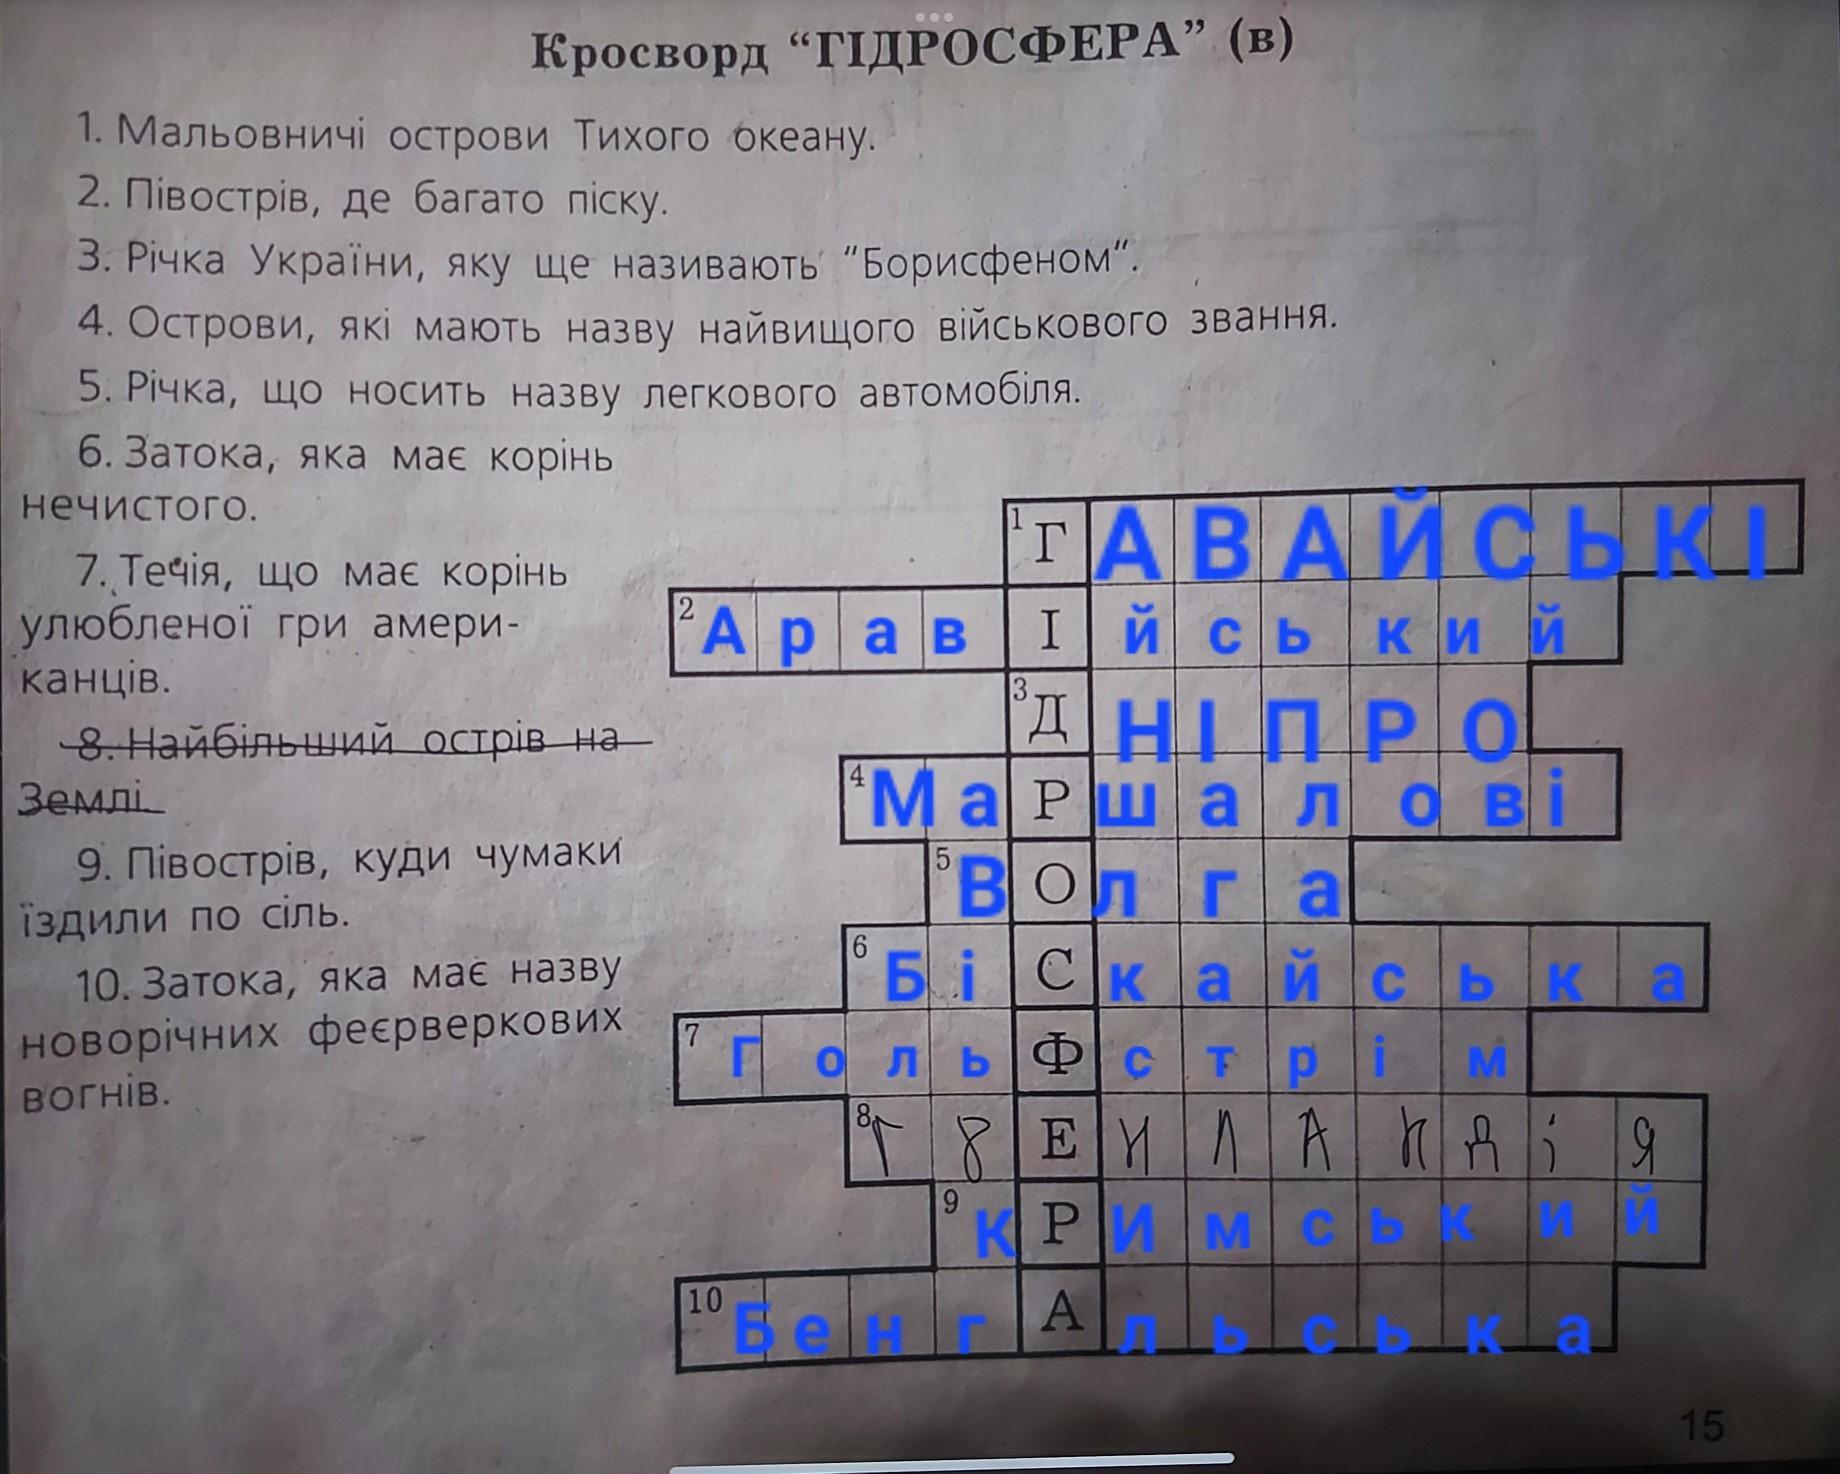 Кросворд “ГІДРОСФЕРА” (в)
1. Мальовничі острови Тихого океану.
2. Півострів, де багато піску.
3. Річка України, яку ще називають “Борисфеном”.
4. Острови, які мають назву найвищого військового звання.
5. Річка, що носить назву легкового автомобіля.
6. Затока, яка має корінь
нечистого.
7. Течія, що має корінь
улюбленої гри амери-
канців.
8. Найбільший острів на
Землі.
9. Півострів, куди чумаки
їздили по сіль.
10. Затока, яка має назву
новорічних феєрверкових
вогнів.
1 Г А В А Й С Ь К І
2 А р а в І й с ь к и й
3 Д Н І П Р О
4 М а Р ш а л о в і
5 В О л г а
6 Б і С к а й с ь к а
7 Г о л ь Ф с т р і м
8 Г р Е Н Л А Н Д і Я
9 К Р И м с ь к и й
10 Б е н г А л ь с ь к а
15